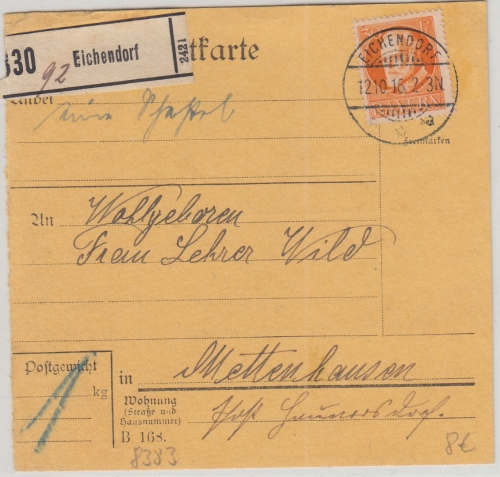 630 Eichendorf 2421
92
tkarte
Anbei
eine Schachtel
EICHENDORF
12.10.16. 2-3N
BAYERN
Freimarken
An Wohlgeboren
Frau Lehrer Wild
Postgewicht
kg
1
in Mettenhausen
Wohnung
(Straße und
Hausnummer)
Post Haunersdorf.
B 168.
8383
8€